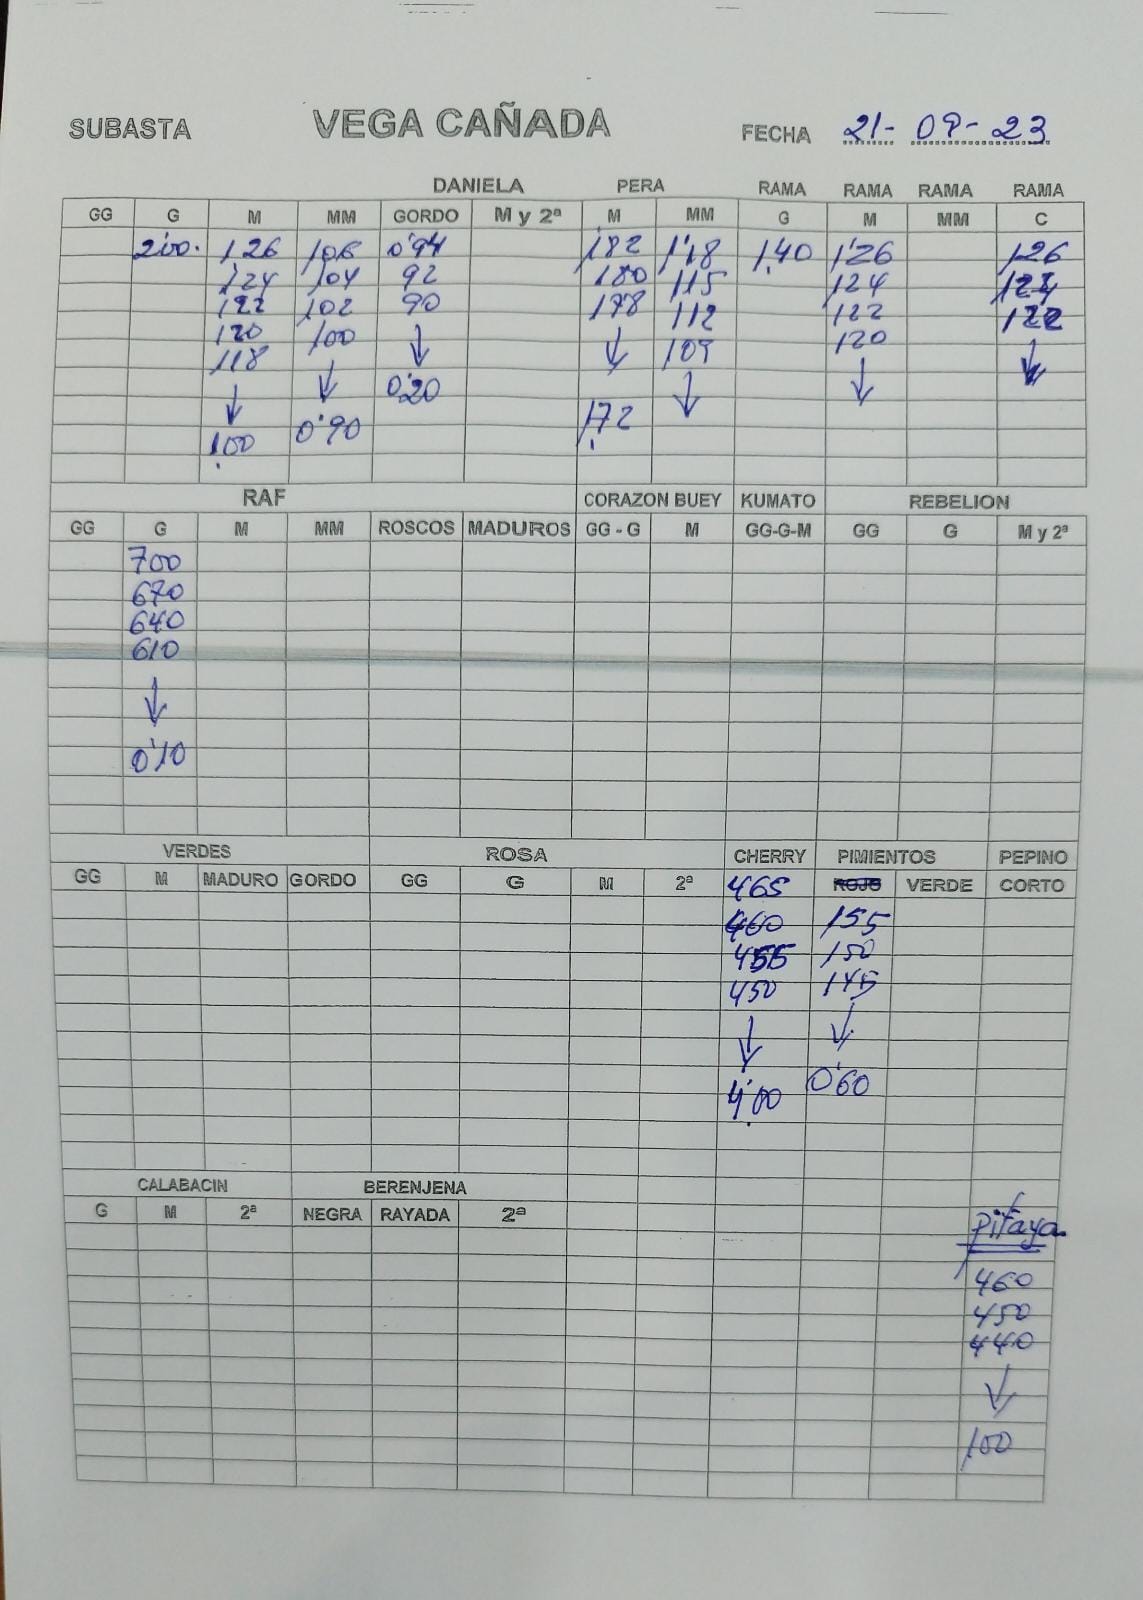 SUBASTA VEGA CAÑADA FECHA 21-09-23
DANIELA PERA RAMA RAMA RAMA RAMA
GG G M MM GORDO M y 2ª M MM G M MM C
2'00. 126 106 0'94 182 1'18 1,40 1'26 126
124 104 92 180 115 124 124
122 102 90 178 112 122 122
120 100 ↓ ↓ 109 120 ↓
118 ↓ 0'20 ↓ ↓
↓ 0'90 172
1,00
RAF CORAZON BUEY KUMATO REBELION
GG G M MM ROSCOS MADUROS GG - G M GG-G-M GG G M y 2ª
700
670
640
610
↓
0'10
VERDES ROSA CHERRY PIMIENTOS PEPINO
GG M MADURO GORDO GG G M 2ª 465 ROJO VERDE CORTO
460 155
455 150
450 145
↓ ↓
4'00 0'60
CALABACIN BERENJENA
G M 2ª NEGRA RAYADA 2ª Pitaya
460
450
440
↓
100